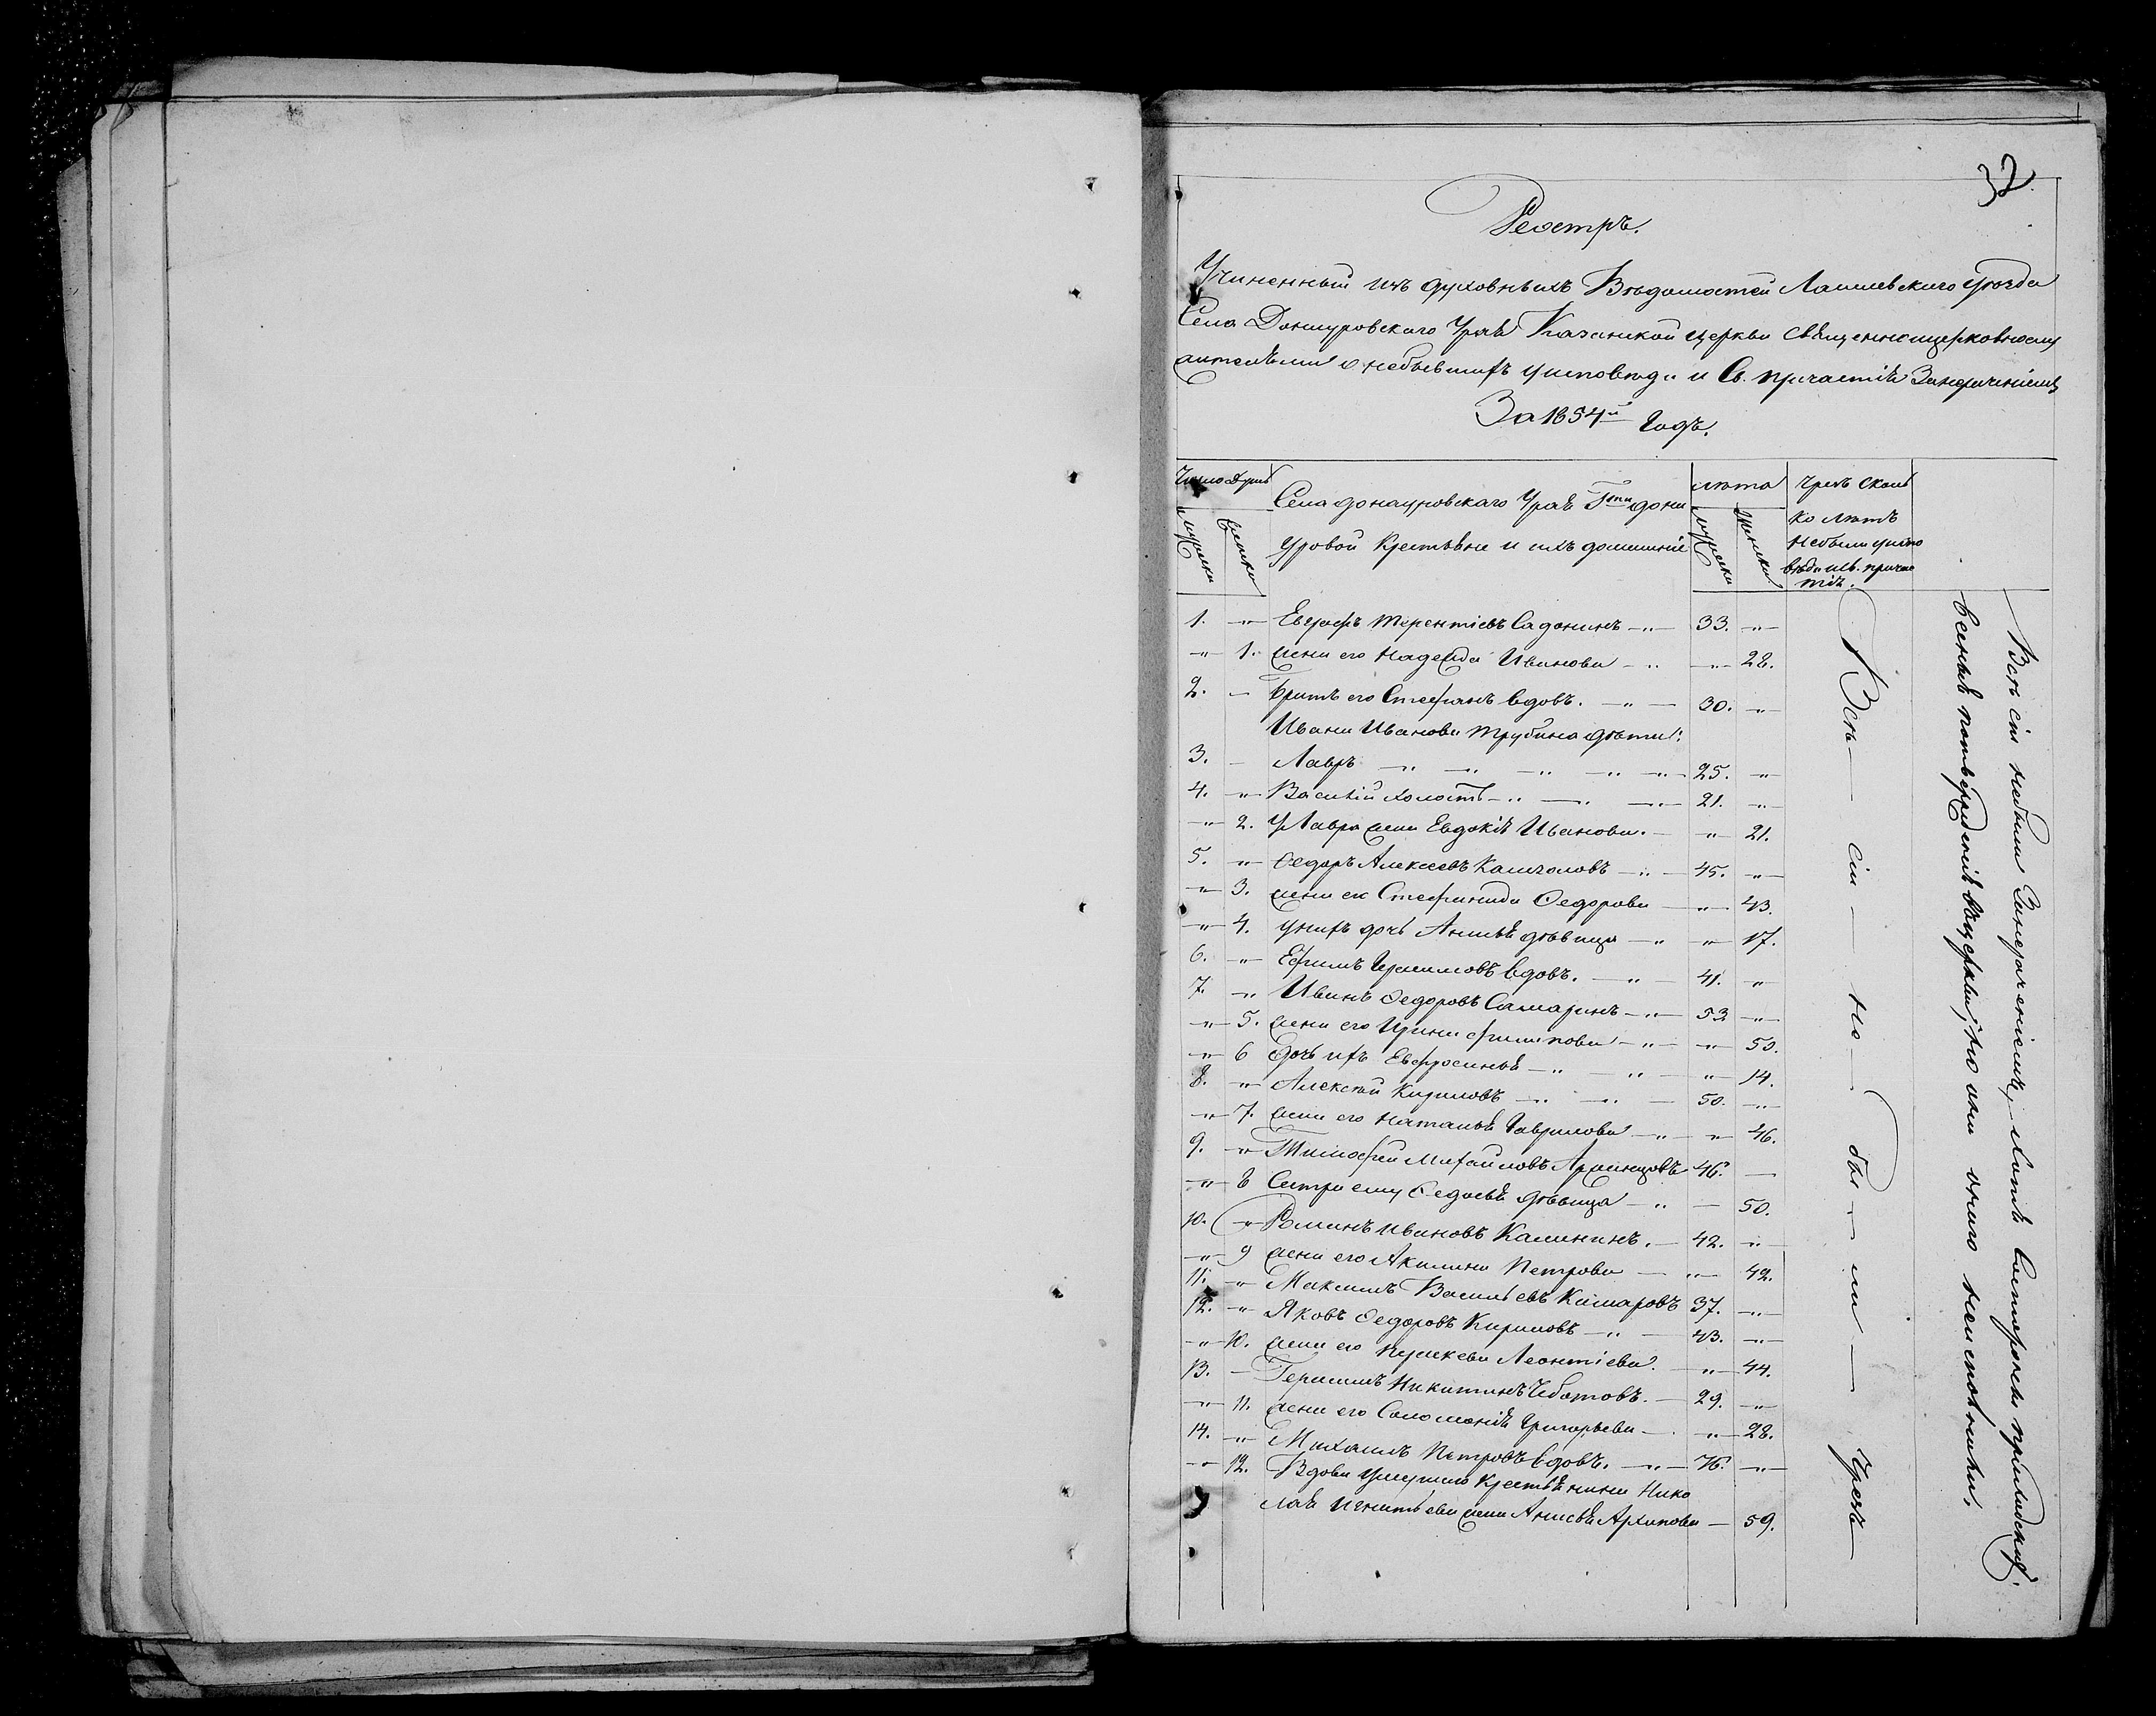 32.
Реестръ.
Учиненный изъ духовныхъ Вѣдомостей Лаишевскаго уѣзда
Села Донауровскаго Урая Казанской церкви Священноцерковносл
жителями о небывшихъ у исповѣди и Св. причастія Занерачениемъ
За 1854й Годъ.
Число душъ
мужска
женска
Села Донауровскаго Урая Гпжи дона
уровой Крестьяне и ихъ домашніе
лѣта
мужска
женска
чрезъ сколь
ко лѣтъ
небыли у испо
вѣди и св. прича
тія.
1. „ Евграфъ Терентіевъ Садонинъ 33. „
„ 1. жена его Надежда Иванова „ 28.
2. „ Братъ его Стефанъ вдовъ. 30. „
Ивана Иванова Трубина дѣти:
3. „ Лавръ 25. „
4. „ Василій холостъ 21. „
„ 2. У Лавра жена Евдокія Иванова. „ 21.
5. „ Ѳедоръ Алексѣевъ 45. „
„ 3. жена ея Стефанида Ѳедорова „ 43.
„ 4. у нихъ дочь Анисья дѣвица „ 17.
6. „ Ефимъ Герасимовъ вдовъ. 41. „
7. „ Иванъ Ѳедоровъ Самаринъ 53 „
„ 5. жена его Ирина Филипова „ 50.
„ 6 Дочь ихъ Евфросинья „ 14.
8. „ Алексѣй Кириловъ 50. „
„ 7. жена его Наталья Гаврилова „ 46.
9. „ Тимофей Михайловъ 46. „
„ 8 Сестра ему Ѳедосья дѣвица „ 50.
10. „ Романъ Ивановъ Калининъ. 42. „
„ 9 жена его Акилина Петрова „ 42.
11. „ Максимъ Васильевъ Камаровъ 37. „
12. „ Яковъ Ѳедоровъ Кириловъ 43. „
„ 10. жена его Параскева Леонтіева. „ 44.
13. „ Герасимъ Никитинъ Чеботовъ. 29. „
„ 11. жена его Соломонія Григорьева „ 28.
14. „ Михаилъ Петровъ вдовъ. 76. „
„ 12. Вдова умершаго Крестьянина Нико
лая Игнатьева жена Анисья Архипова 59.
Всѣ сіи не были Чрезъ
Всѣ сіи небыли Занерачениемъ, хотя
но они онаго неисполнили.